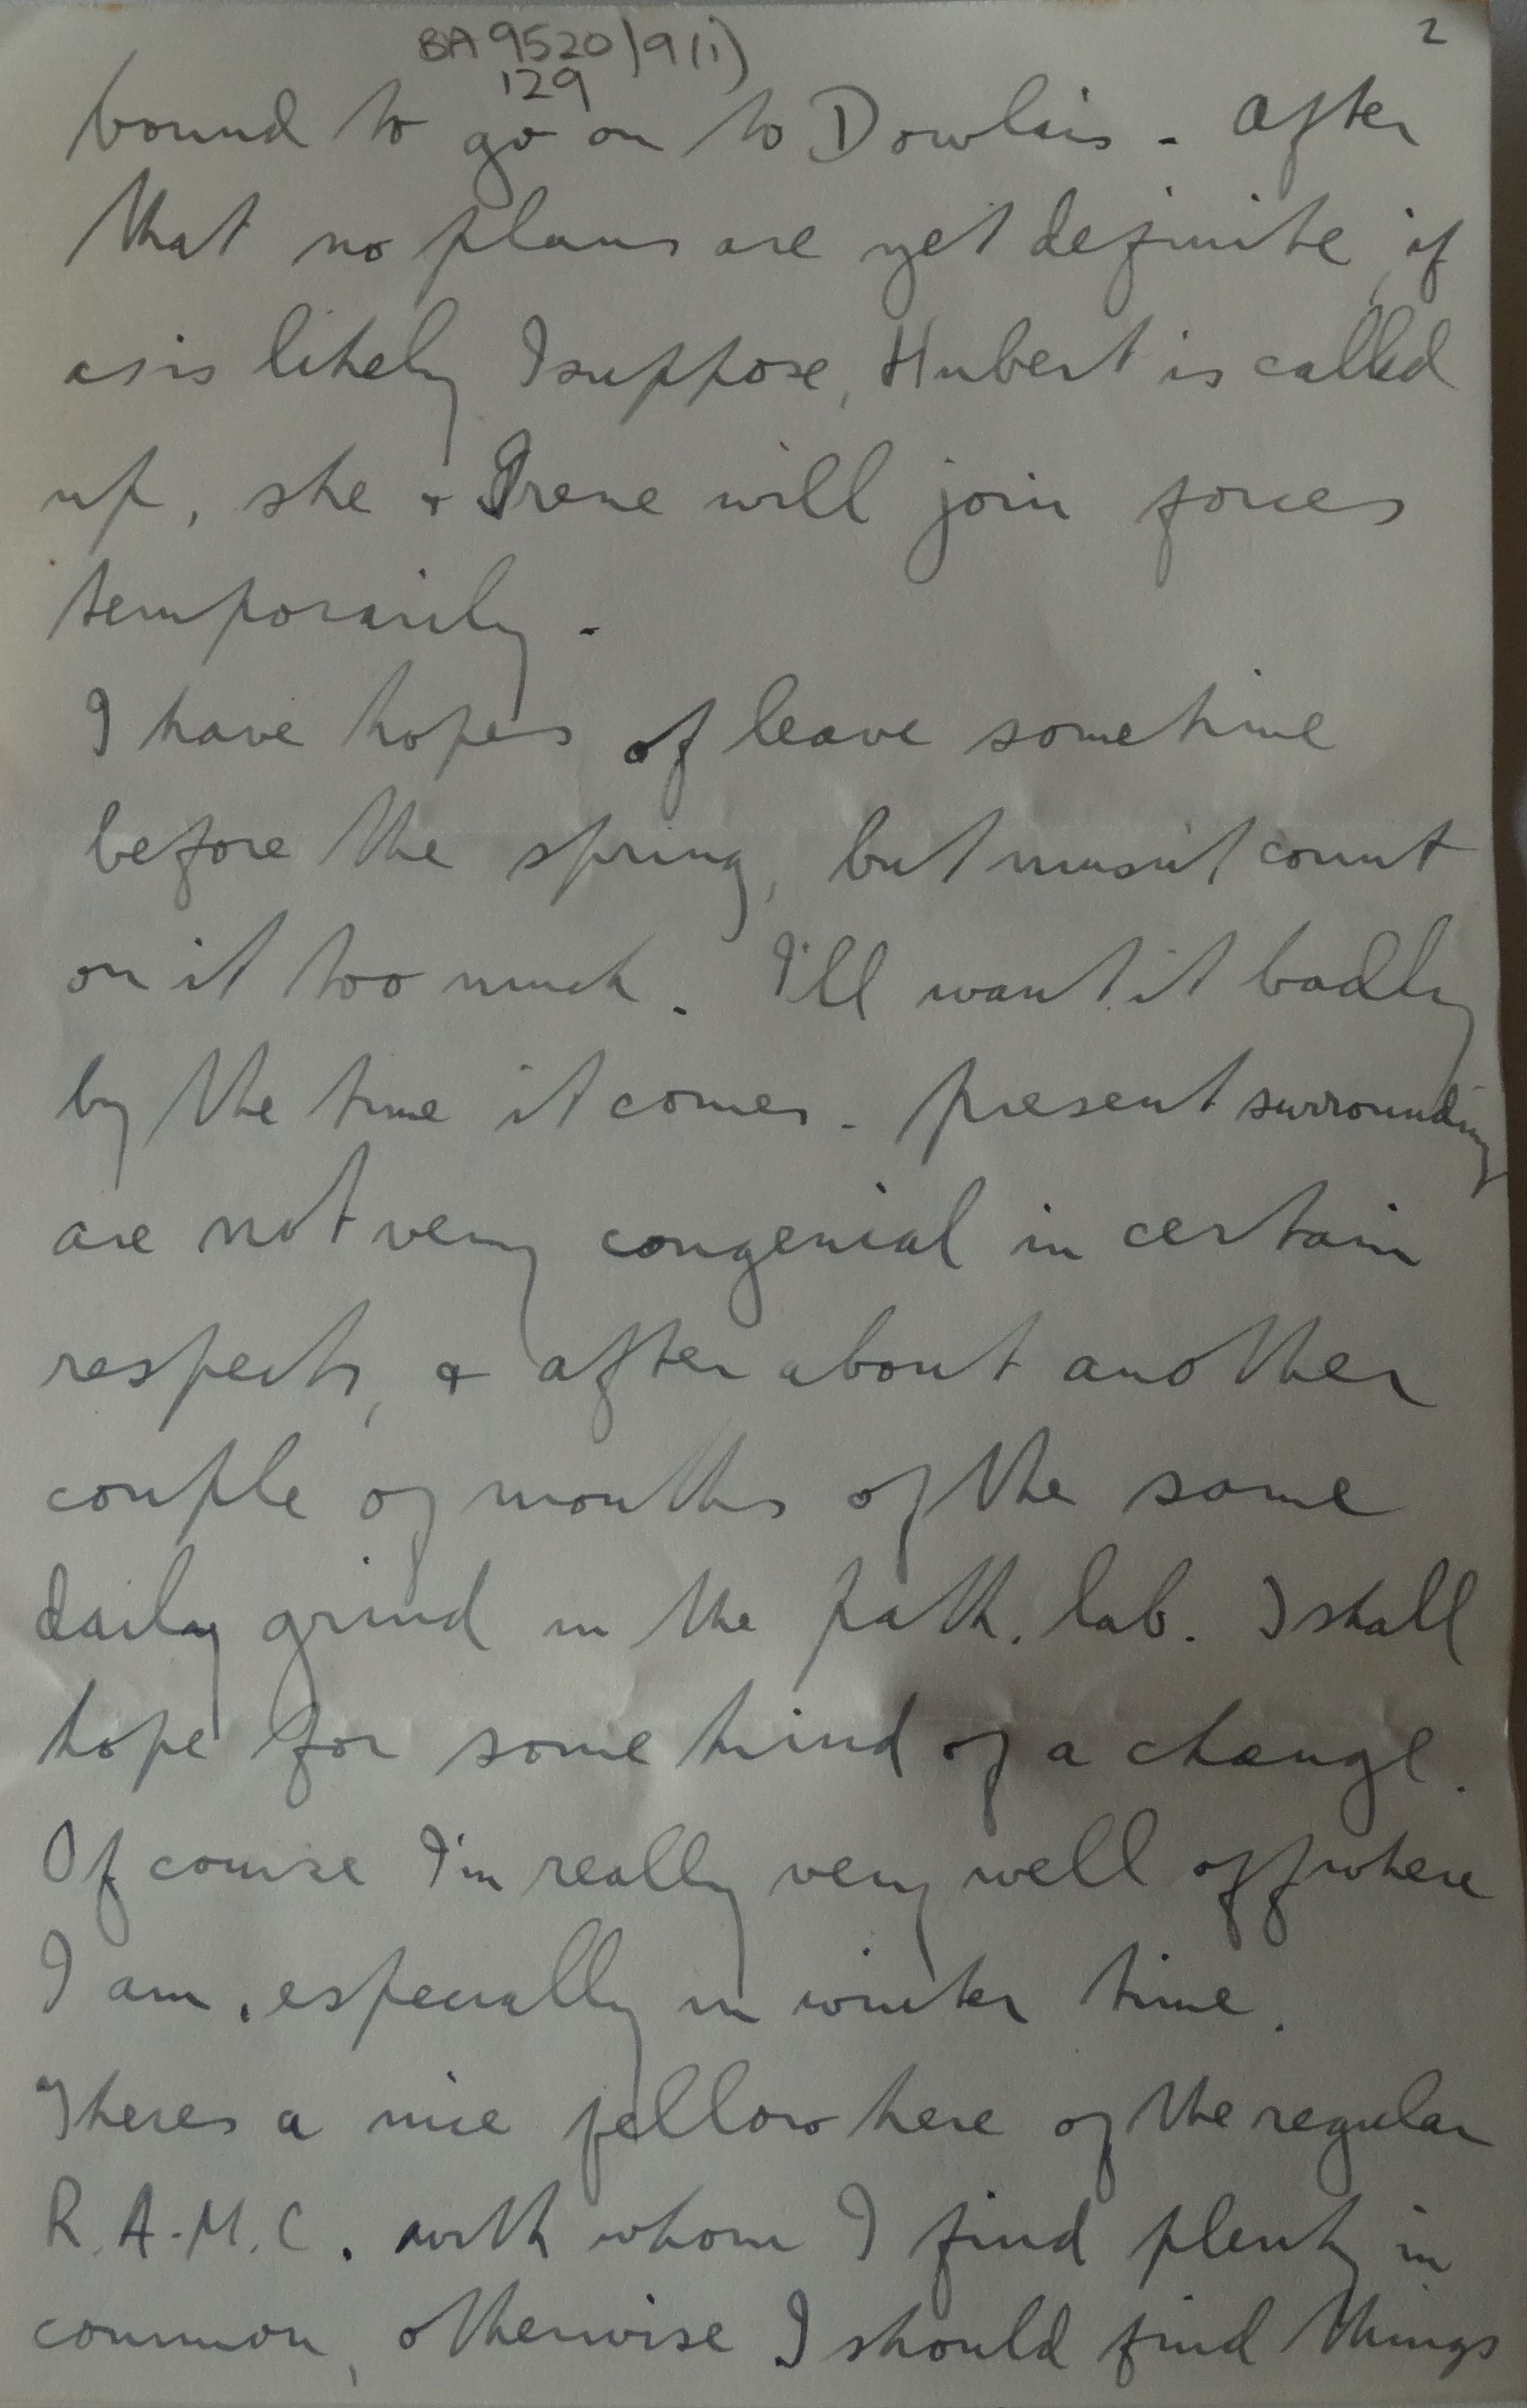 BA 9520/9(i)
129
2
bound to go on to Dowlais - After
that no plans are yet definite, if
as is likely I suppose, Hubert is called
up, she + Irene will join forces
temporarily -
I have hopes of leave sometime
before the spring, but musn't count
on it too much. I'll want it badly
by the time it comes - present surroundings
are not very congenial in certain
respects, & after about another
couple of months of the same
daily grind in the path. lab. I shall
hope for some kind of a change.
Of course I'm really very well off where
I am, especially in winter time.
Theres a nice fellow here of the regular
R.A.M.C. with whom I find plenty in
common, otherwise I should find things